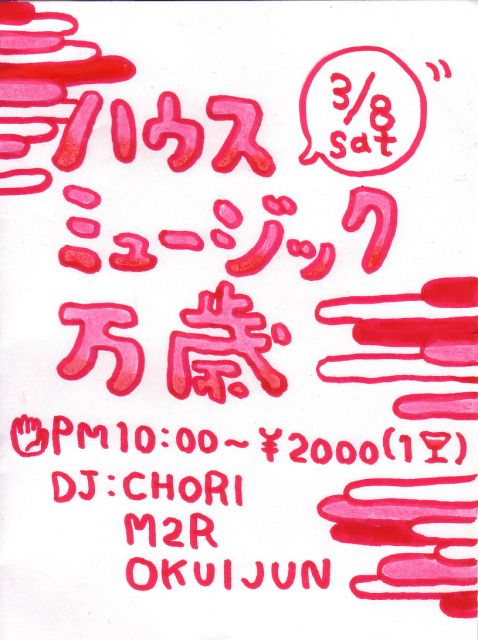 3/8
sat
ハウス
ミュージック
万歳
PM10:00~¥2000(1🍸)
DJ:CHORI
M2R
OKUIJUN